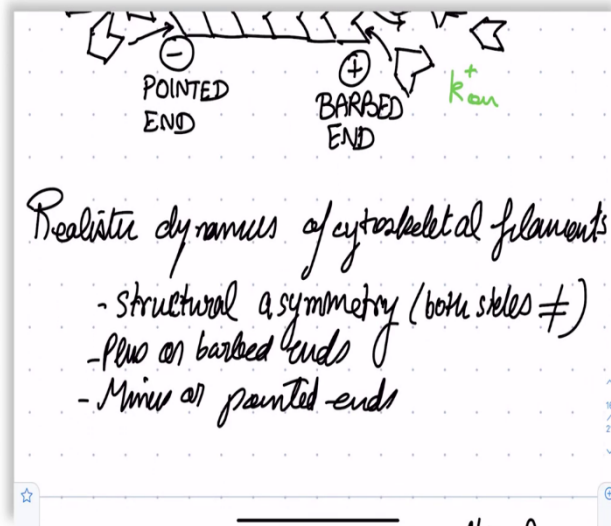 −
+
POINTED
END
BARBED
END
k⁺on
Realistic dynamics of cytoskeletal filaments
- structural asymmetry (both sides ≠)
- Plus or barbed ends
- Minus or pointed ends